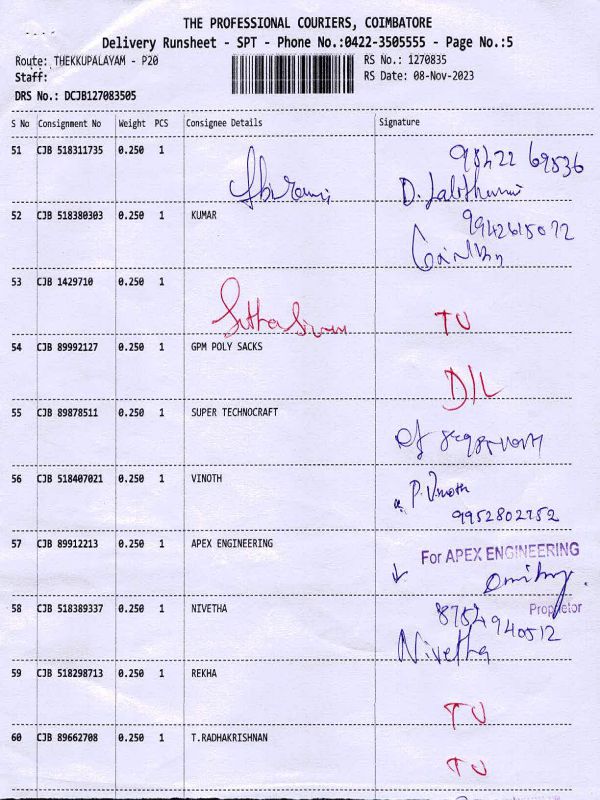 THE PROFESSIONAL COURIERS, COIMBATORE
Delivery Runsheet - SPT - Phone No.:0422-3505555 - Page No.:5
Route: THEKKUPALAYAM - P20 RS No.: 1270835
Staff: RS Date: 08-Nov-2023
DRS No.: DCJB127083505
S No Consignment No Weight PCS Consignee Details Signature
51 CJB 518311735 0.250 1 98422 69536
52 CJB 518380303 0.250 1 KUMAR 9942615072
53 CJB 1429710 0.250 1 TU
54 CJB 89992127 0.250 1 GPM POLY SACKS D/L
55 CJB 89878511 0.250 1 SUPER TECHNOCRAFT
56 CJB 518407021 0.250 1 VINOTH P. Vinoth
9952802752
57 CJB 89912213 0.250 1 APEX ENGINEERING For APEX ENGINEERING
Proprietor
58 CJB 518389337 0.250 1 NIVETHA 8754940512
Nivetha
59 CJB 518298713 0.250 1 REKHA TU
60 CJB 89662708 0.250 1 T.RADHAKRISHNAN TU